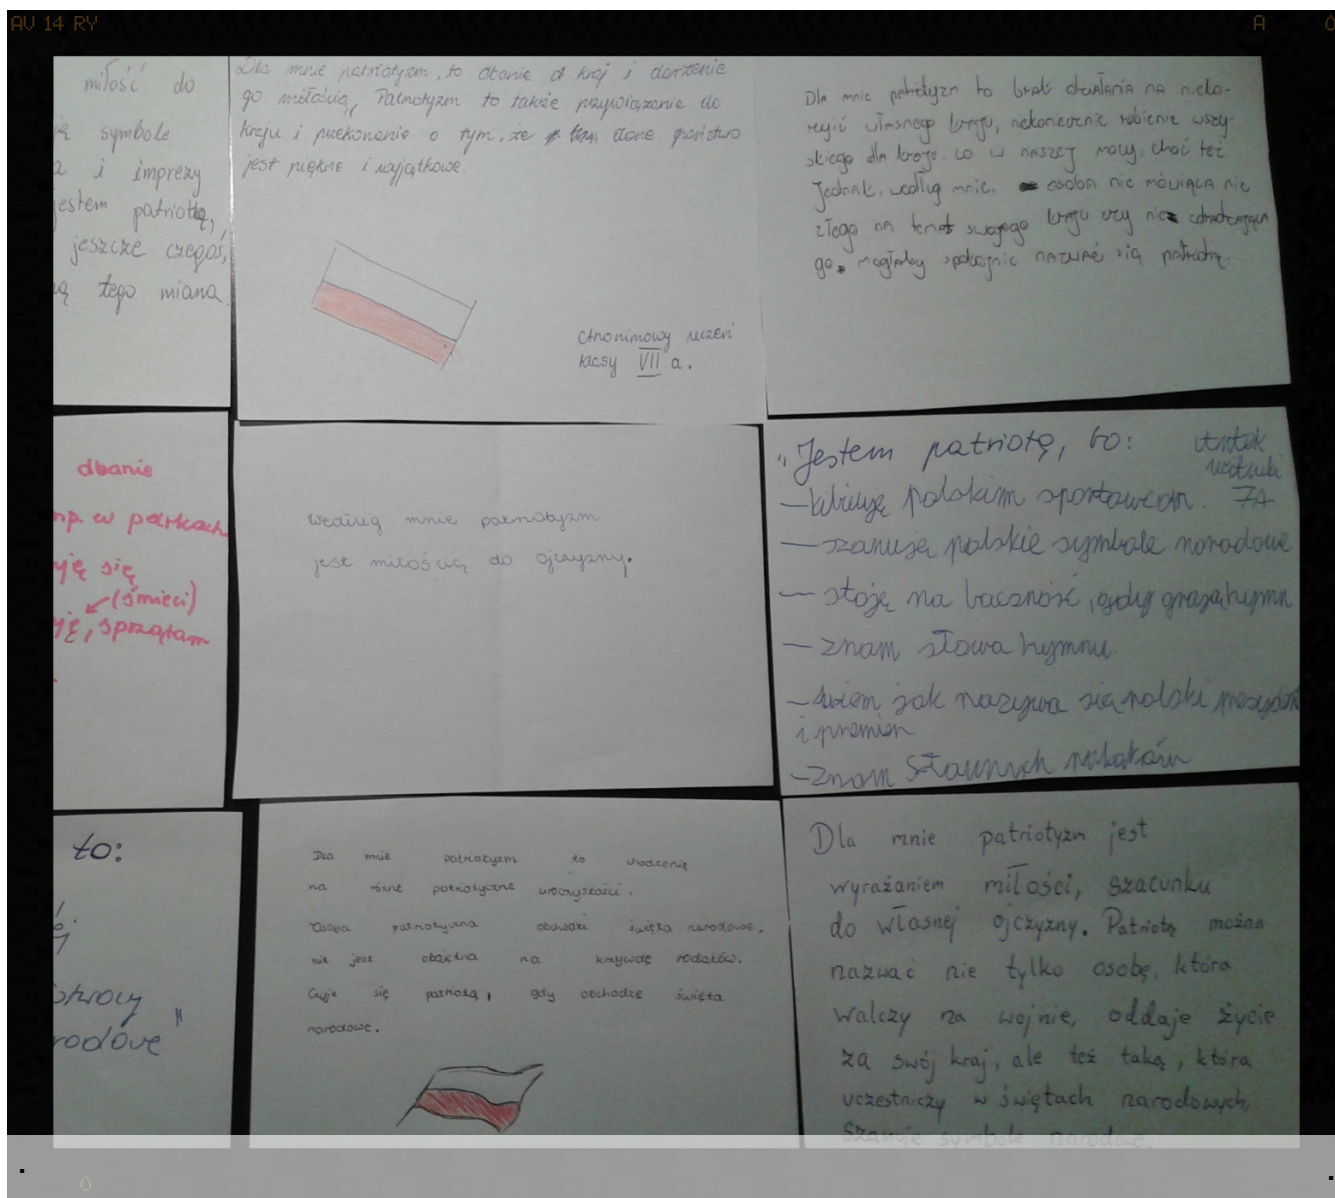 AV 14 RY
A
miłość do
symbole
i imprezy
jestem patriotą,
jeszcze czegoś,
tego miana.
Dla mnie patriotyzm, to dbanie o kraj i darzenie
go miłością. Patriotyzm to także przywiązanie do
kraju i przekonanie o tym, że dane państwo
jest piękne i wyjątkowe.
Anonimowy uczeń
klasy VII a.
Dla mnie patriotyzm to brak działania na nieko-
rzyść własnego kraju, niekoniecznie robienie wszy-
skiego dla kraju, co w naszej mocy, choć też.
Jednak, według mnie, osoba nie mówiąca nic
złego na temat swojego kraju czy nie zdradzająca
go, mogłaby spokojnie nazwać się patriotą.
dbanie
np. w parkach
się
(śmieci)
, sprzątam
Według mnie patriotyzm
jest miłością do ojczyzny.
"Jestem patriotą, bo: Antek
7A
– kibicuję polskim sportowcom.
– szanuję polskie symbole narodowe
– stoję na baczność, gdy grają hymn
– znam słowa hymnu
– wiem jak nazywa się polski prezydent
i premier
– znam sławnych
to:
"
Dla mnie patriotyzm to chodzenie
na różne patriotyczne uroczystości.
Osoba patriotyczna obchodzi święta narodowe,
nie jest obojętna na krzywdę rodaków.
Czuje się patriotą, gdy obchodzę święta
narodowe.
Dla mnie patriotyzm jest
wyrażaniem miłości, szacunku
do własnej ojczyzny. Patriotą można
nazwać nie tylko osobę, która
walczy na wojnie, oddaje życie
za swój kraj, ale też taką, która
uczestniczy w świętach narodowych,
szanuje symbole narodowe.